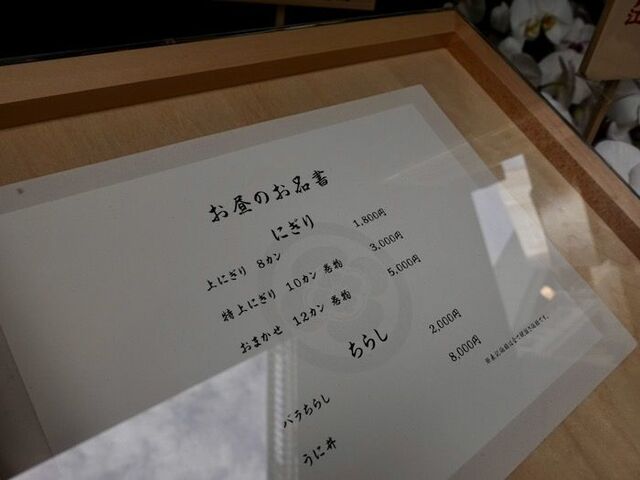 お昼のお品書
にぎり
上にぎり 8カン 1,800円
特上にぎり 10カン 巻物 3,000円
おまかせ 12カン 巻物 5,000円
ちらし
バラちらし 2,000円
うに丼 8,000円